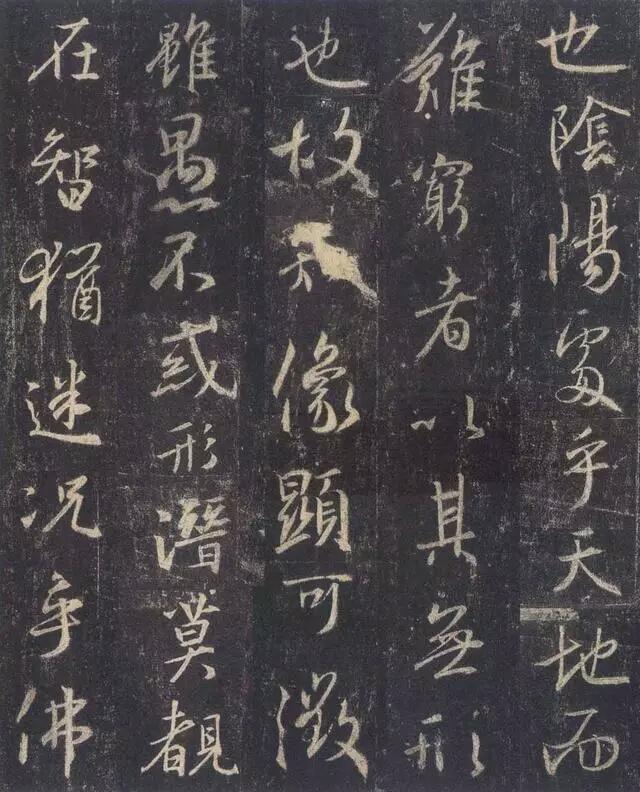 也陰陽處乎天地而
難窮者以其無形
也故像顯可徵
雖愚不惑形潛莫覩
在智猶迷況乎佛